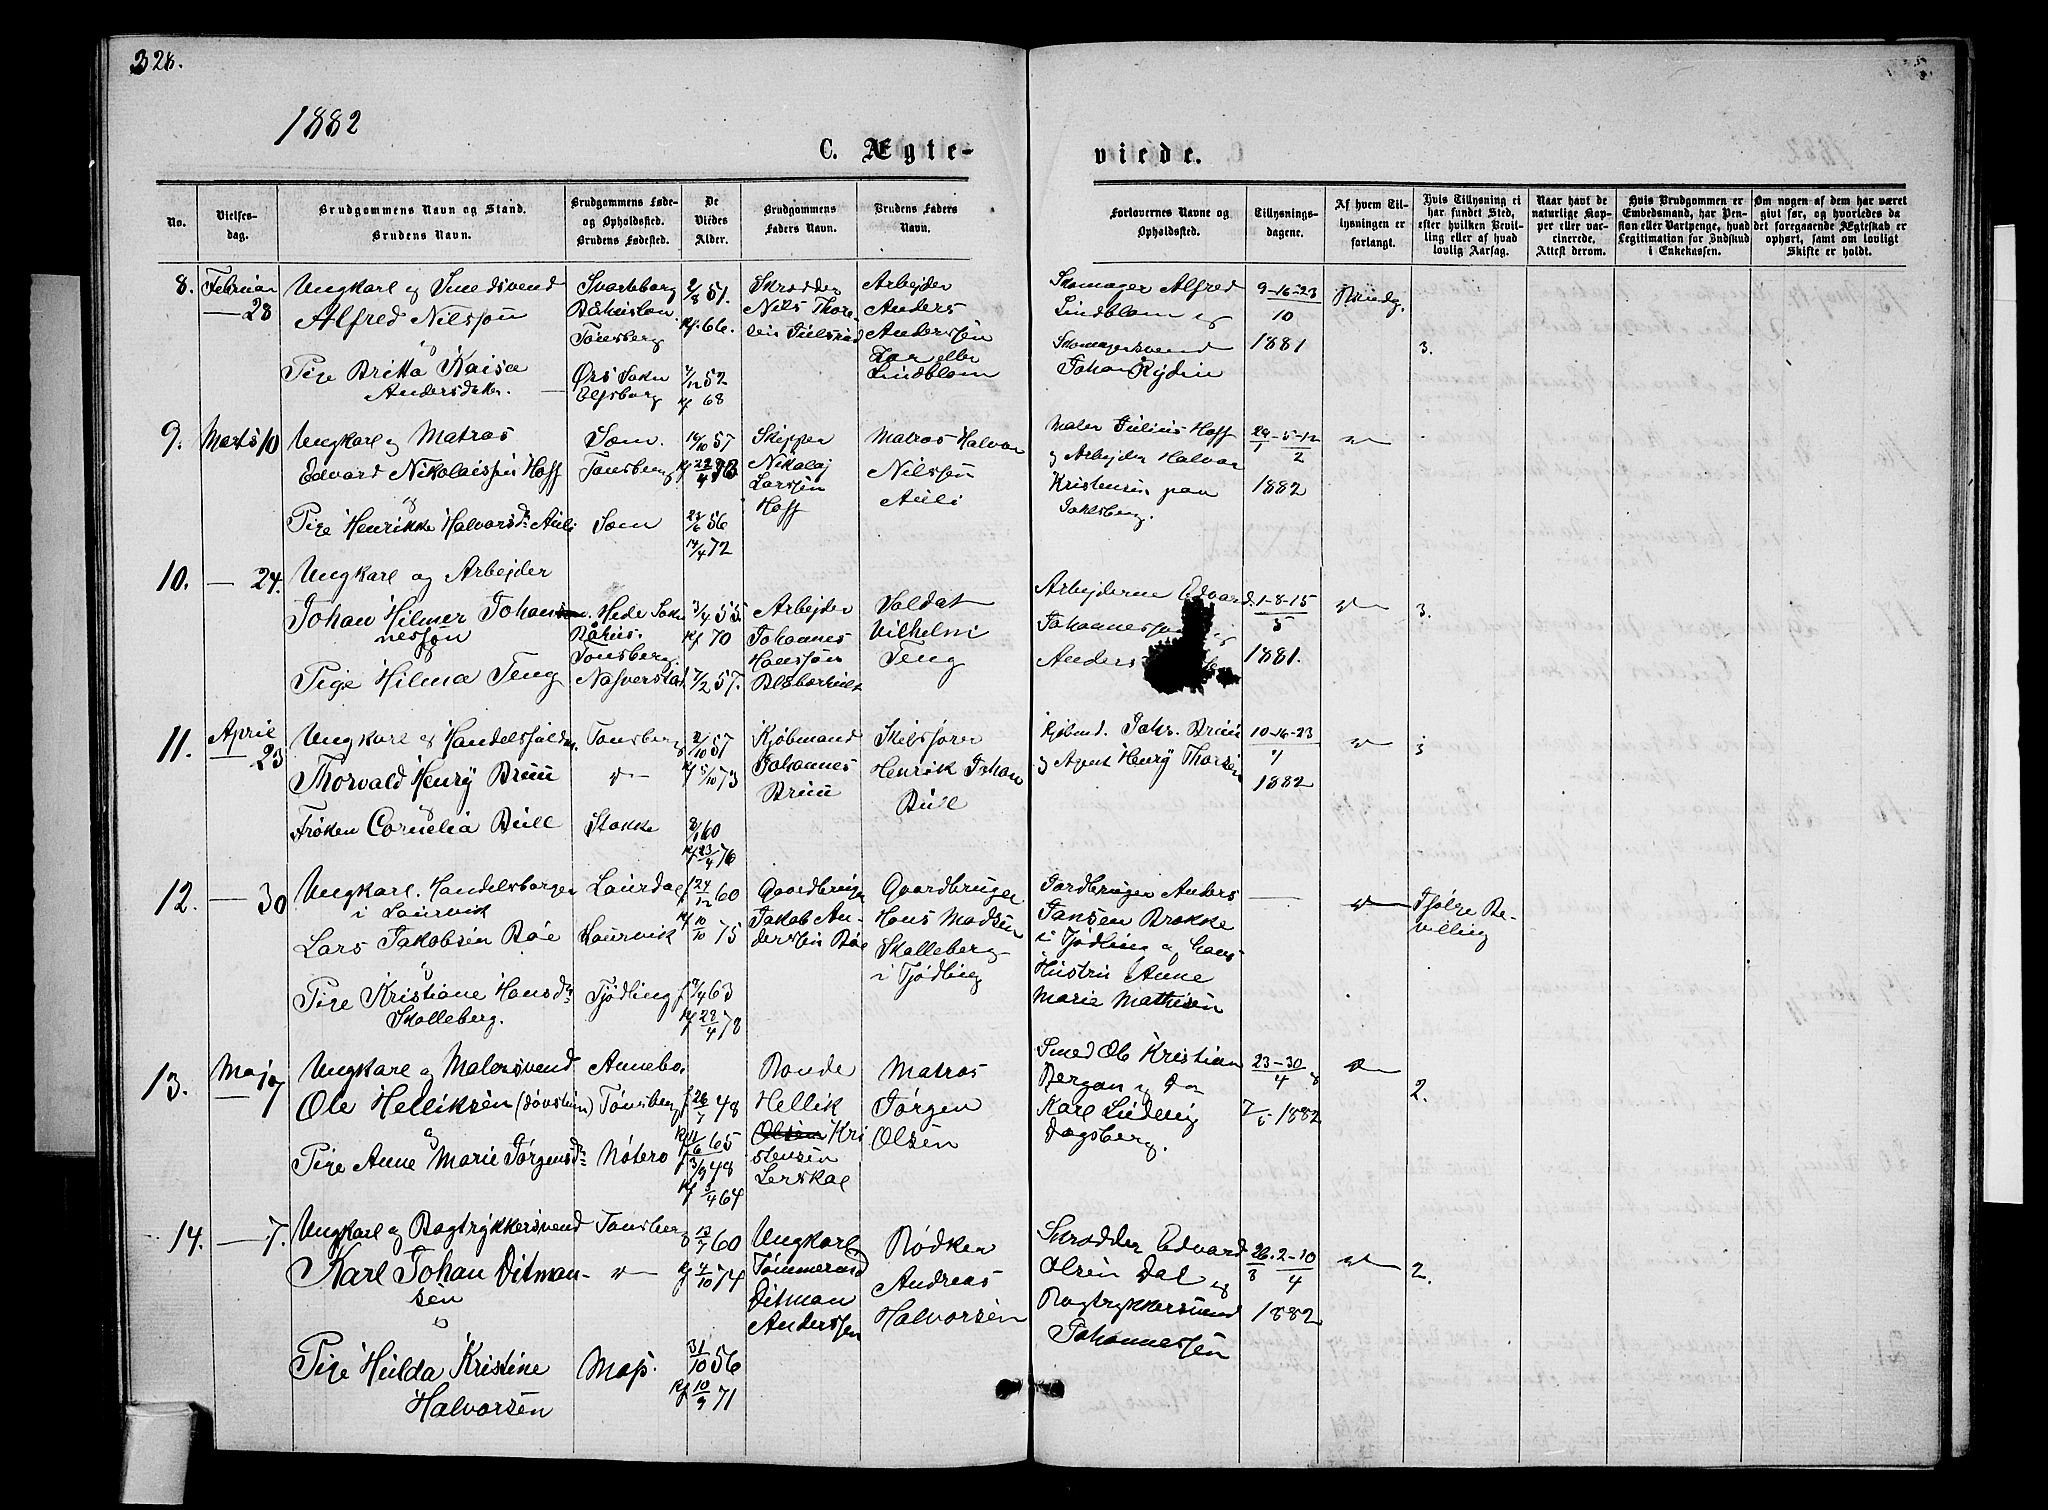 328.
1882
C. Ægte-
viede.
No.
Vielses-
dag.
Brudgommens Navn og Stand.
Brudens Navn.
Brudgommens Føde-
og Opholdssted.
Brudens Fødested.
De
Viedes
Alder.
Brudgommens
Faders Navn.
Brudens Faders
Navn.
Forlovernes Navne og
Opholdssted.
Tillysnings-
dagene.
Af hvem Til-
lysningen er
forlangt.
Hvis Tillysning ei
har fundet Sted,
efter hvilken Bevil-
ling eller af hvad
lovlig Aarsag.
Naar havt de
naturlige Kop-
per eller vac-
cinerede,
Attest derom.
Hvis Brudgommen er
Embedsmand, har Pen-
sion eller Vartpenge, hvad
Legitimation for Indskud
i Enkekassen.
Om nogen af dem har været
givt før, og hvorledes da
det foregaaende Ægteskab er
ophørt, samt om lovligt
Skifte er holdt.
8. Februar
28
Ungkarl og Smedsvend
Alfred Nilssøn
og
Pige Britta Kaisa
Andersdatter.
Svarteborg
Tønsberg
Ørs Sokn
Elfsborg
2/8 51.
Kf. 66.
52
Kf 68
Skrædder
Nils Thore
Arbejder
Anders
Anderssøn
eller
Lindblom
Skomager Alfred
Lindblom og
Skomagersvend
Johan Rydin
9-16-23
10
1881
Brudg.
3.
9. Marts 10
Ungkarl og Matros
Edvard Nikolaissen Hoff
og
Pige Henrikke Halvorsdr. Auli
Sem.
Tønsberg
Sem
57
56
14/4 72
Skipper
Nikolaj
Larssen
Hoff
Matros Halvor
Nilssøn
Auli
Maler Julius Hoff
og Arbejder Halvor
Kristensen paa
29-5-12
1 2
1882
10. — 24.
Ungkarl og Arbejder
Johan Hilmer Johan
nessøn
og
Pige Hilma Teng
Hede Sokn
Båhus.
Tønsberg.
3/4 55.
Kf 70
7/2 57.
Arbejder
Johannes
Hanssøn
Soldat
Vilhelm
Teng
Arbejderne Edvard
Johannessøn og
Anders
1-8-15
5
1881.
3.
11. April
23
Ungkarl og
Thorvald Henry Bruu
og
Frøken Cornelia Bull
Tønsberg
Stokke
57
Kf 5/10 73
60
Kf 23/4 76
Kjøbmand
Johannes
Bruu
Henrik Johan
Bull
Kjøbmd. Johs. Bruu
og Agent Henry Thorsen
10-16-23
4
1882
3
12. — 30
Ungkarl. Handelsborger
i Laurvik
Lars Jakobsen Bøe
og
Pige Kristiane Hansdr.
Skalleberg.
Laurdal
Laurvik
Tjødling
f 24/12 60
Kf 10/10 75
63
Kf 28/4 78
Gaardbruger
Jakob An-
dersen Bøe
Gaardbruger
Hans Madsen
Skalleberg
i Tjødling
Jordbruger Anders
Jansen Brekke
i Tjødling og hans
Hustru Anne
Marie Mathisen
—
Følge Be-
villing
13. Maj 7
Ungkarl og Malersvend
Ole Helliksen (døvstum)
og
Pige Anne Marie Jørgensdr.
Annebo.
Tønsberg
Nøterø
f 26/7 48
Kf 11/6 65
f 3/9 48
Kf 3/4 64
Bonde
Hellik
Olsen Kri
stensen
Lerskal
Matros
Jørgen
Olsen
Smed Ole Kristian
Bergan og Do
Karl Ludvig
Dagsberg.
23-30
4 &
7/5 1882
2.
14. — 7.
Ungkarl og Bogtrykkersvend
Karl Johan Ditman-
sen
og
Pige Hulda Kristine
Halvorsen
Tønsberg
Moss.
13/7 60
Kf 4/10 74
31/10 56
Kf 10/9 71
Ungkarl
Ditman
Anderssen
Bødker
Andreas
Halvorsen
Skrædder Edvard
Olsen Dal og
Bogtrykkersvend
Johannessen
26. 2-10
3 4
1882
2.